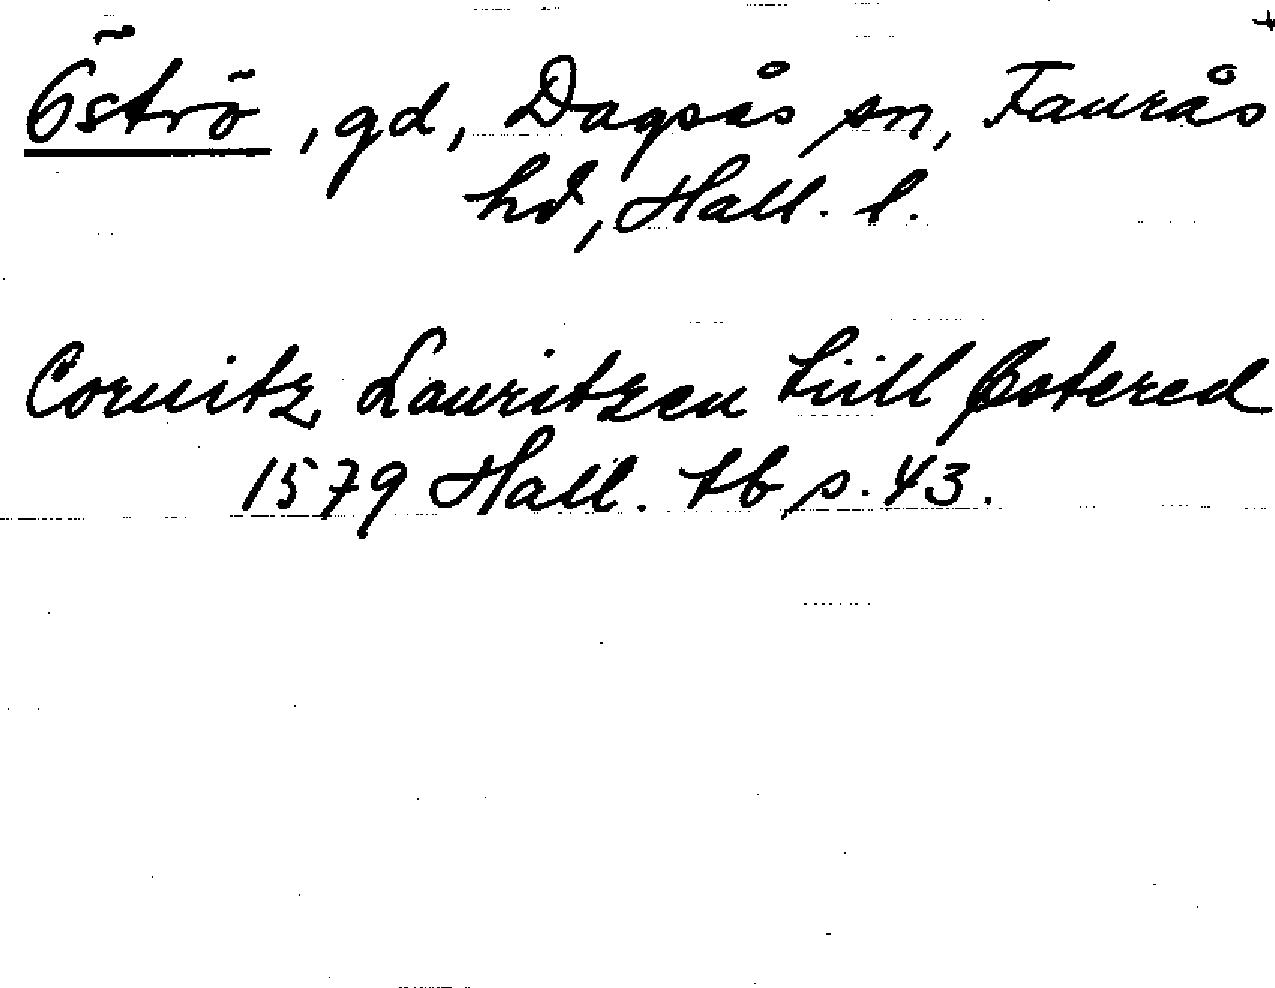 Öströ, gd, Dagsås sn, Faurås
hd, Hall. l.
Cornitz Lauritzen till Østered
1579 Hall. tb s. 43.